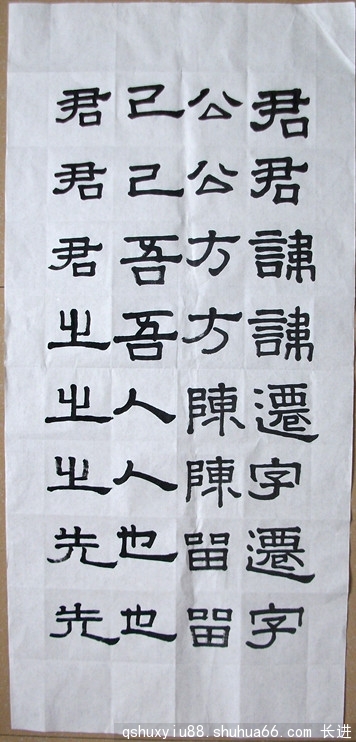 君君諱諱遷字遷字
公公方方陳陳留留
己己吾吾人人也也
君君君之之之先先
qshuxyiu88.shuhua66.com 长进